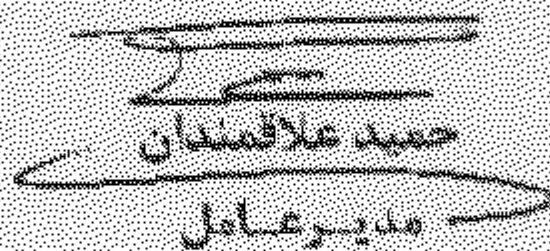 حمید علاقمندان
مدیر عامل